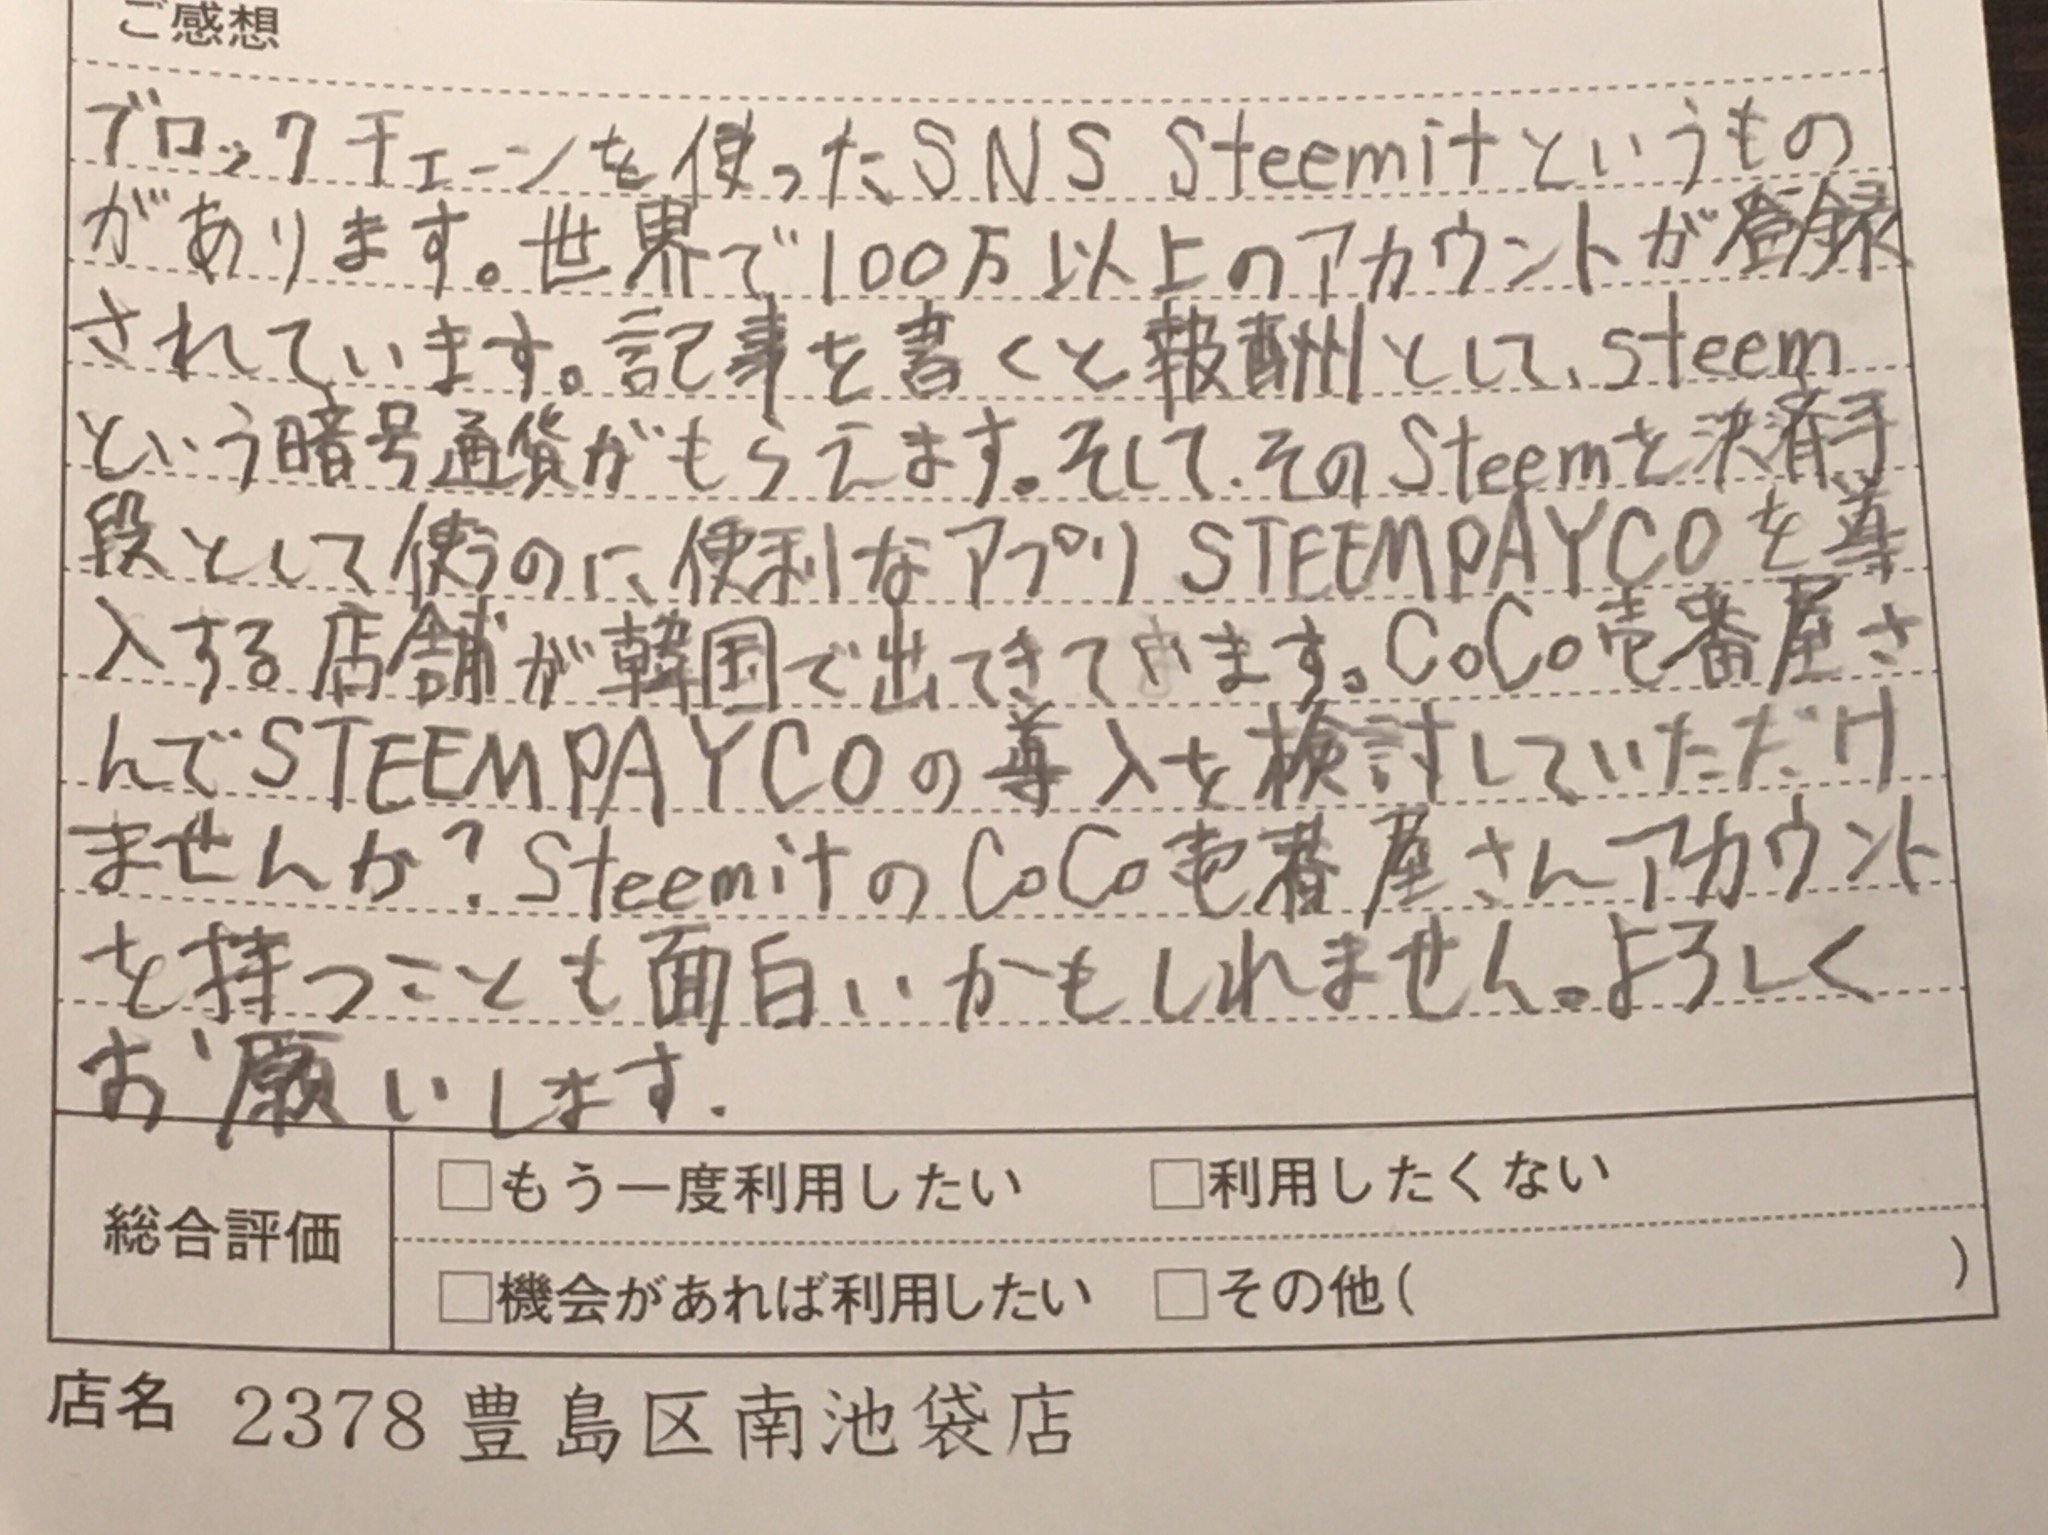 ご感想
ブロックチェーンを使ったSNS Steemitというもの
があります。世界で100万以上のアカウントが登録
されています。記事を書くと報酬として、steem
という暗号通貨がもらえます。そして、そのSteemを決済手
段として使うのに、便利なアプリ STEEMPAYCOを導
入する店舗が韓国で出てきてきます。CoCo壱番屋さ
んでSTEEMPAYCOの導入を検討していただけ
ませんか?SteemitのCoCo壱番屋さんアカウント
を持つことも面白いかもしれません。よろしく
お願いします.
総合評価
□もう一度利用したい □利用したくない
□機会があれば利用したい □その他( )
店名 2378 豊島区南池袋店